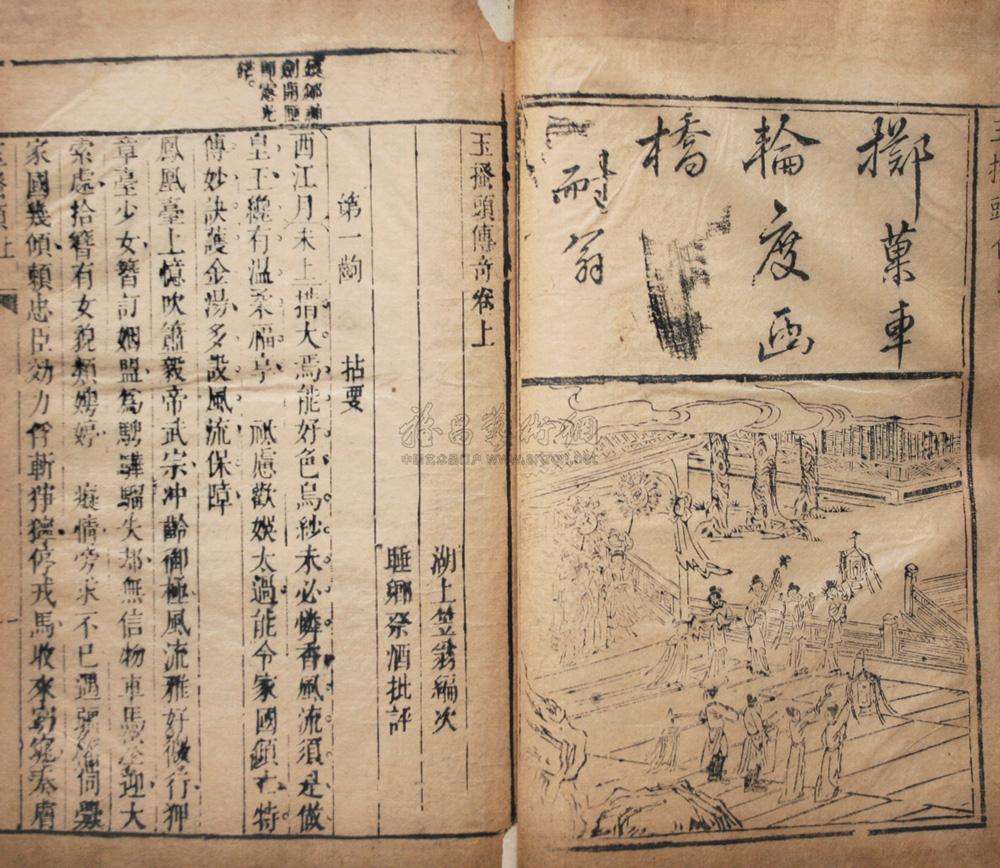 擲菓車
輪度画
橋
翁
玉搔頭傳奇卷上
湖上笠翁編次
睡鄉祭酒批評
第一齣 拈要
西江月 未上措大焉能好色烏紗未必憐香風流須是做
皇王纔有溫柔福享 祗慮歡娛太過能令家國鎖亡特
傳妙訣護金湯多設風流保障
鳳凰臺上憶吹簫毅帝武宗冲齡御極風流雅好微行狎
章臺少女簪訂姻盟為騁驊騮失却無信物車馬空迎大
索處拾簪有女貌類娉婷 癡情旁求不已遇彊藩伺釁
家國幾傾賴忠臣効力俘斬猙獰停戎馬收來窈窕奏膚
雅昌藝術網
www.artron.net